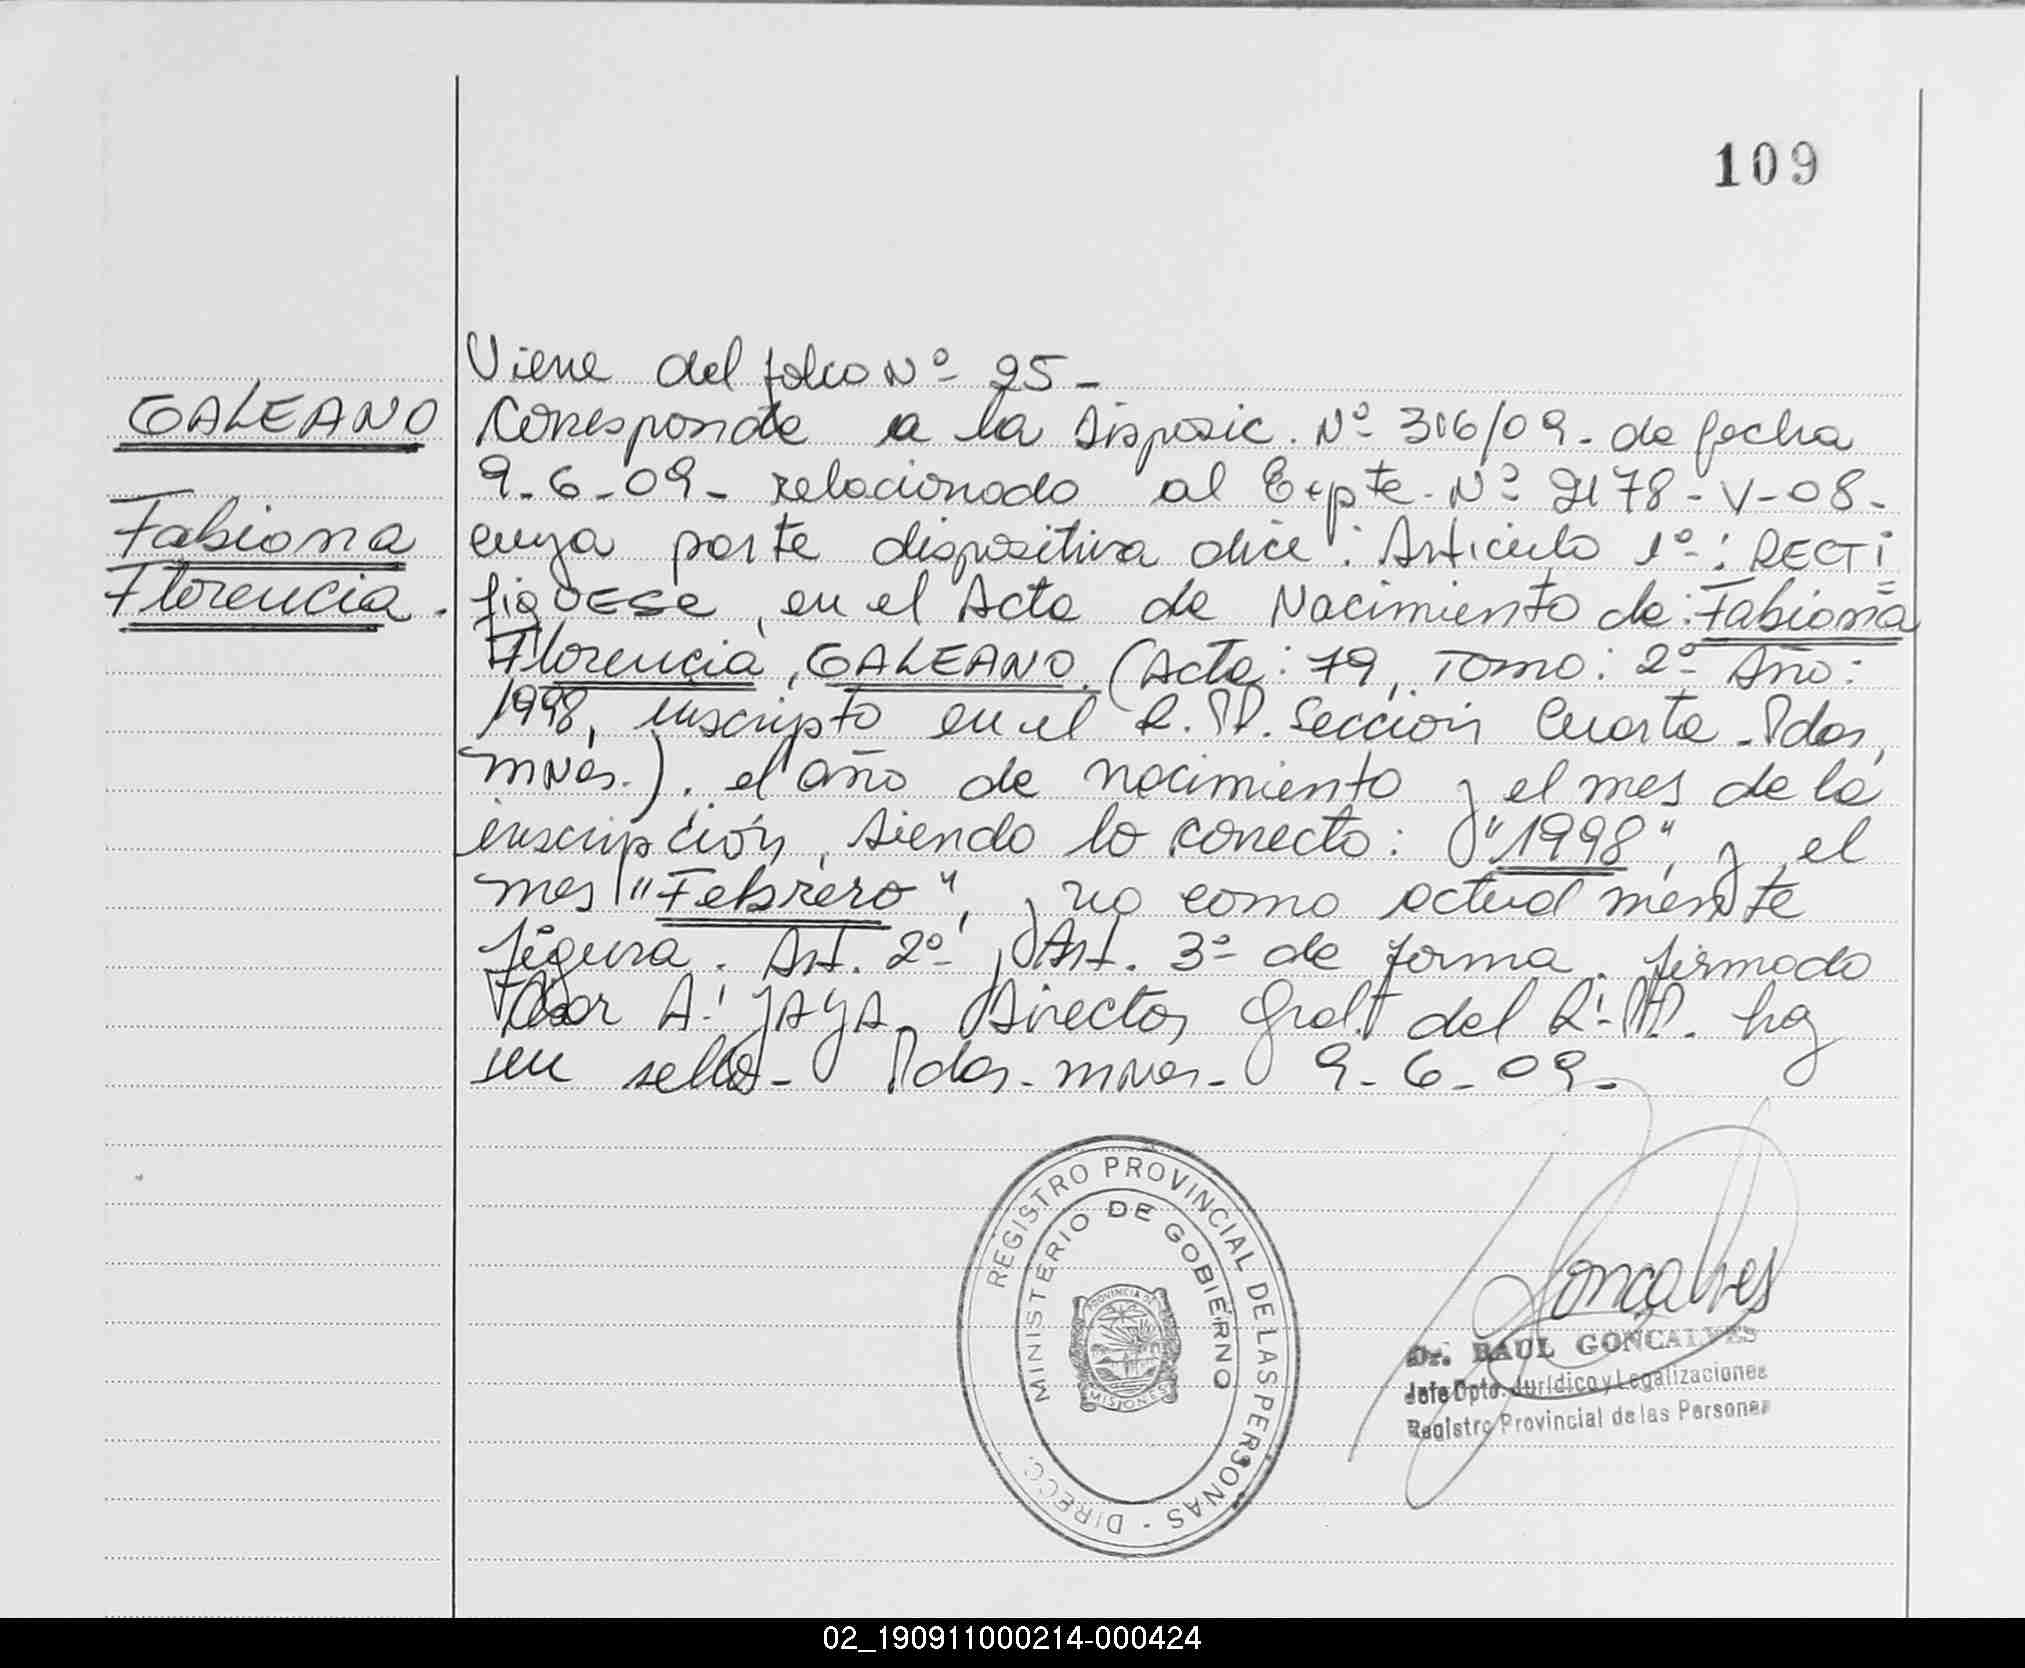 109
Viene del folio Nº 25-
GALEANO
Fabiana
Florencia.
Corresponde a la Disposic. Nº 316/09. de fecha
9-6-09- relacionado al Expte. Nº 2178-V-08-
cuya parte dispositiva dice: Articulo 1º: RECTI
fiquese, en el Acta de Nacimiento de: Fabiana
Florencia, GALEANO. (Acta: 79, Tomo: 2º Año:
1998, inscripto en el R.PP. Sección Cuarta. Pdas,
Mnes.). el año de nacimiento y el mes de la
inscripción, siendo lo correcto: "1998", y el
mes "Febrero", y no como actualmente
figura. Art. 2º y Art. 3º de forma. firmado
Por A. JAYA. Director Gral. del R.PP. hay
un sello- Pdas- Mnes- 9-6-09-
REGISTRO PROVINCIAL DE LAS PERSONAS - DIRECC.
MINISTERIO DE GOBIERNO
PROVINCIA DE
MISIONES
Goncalves
Dr. RAUL GONCALVES
Jefe Dpto. Jurídico y Legalizaciones
Registro Provincial de las Personas
02_190911000214-000424